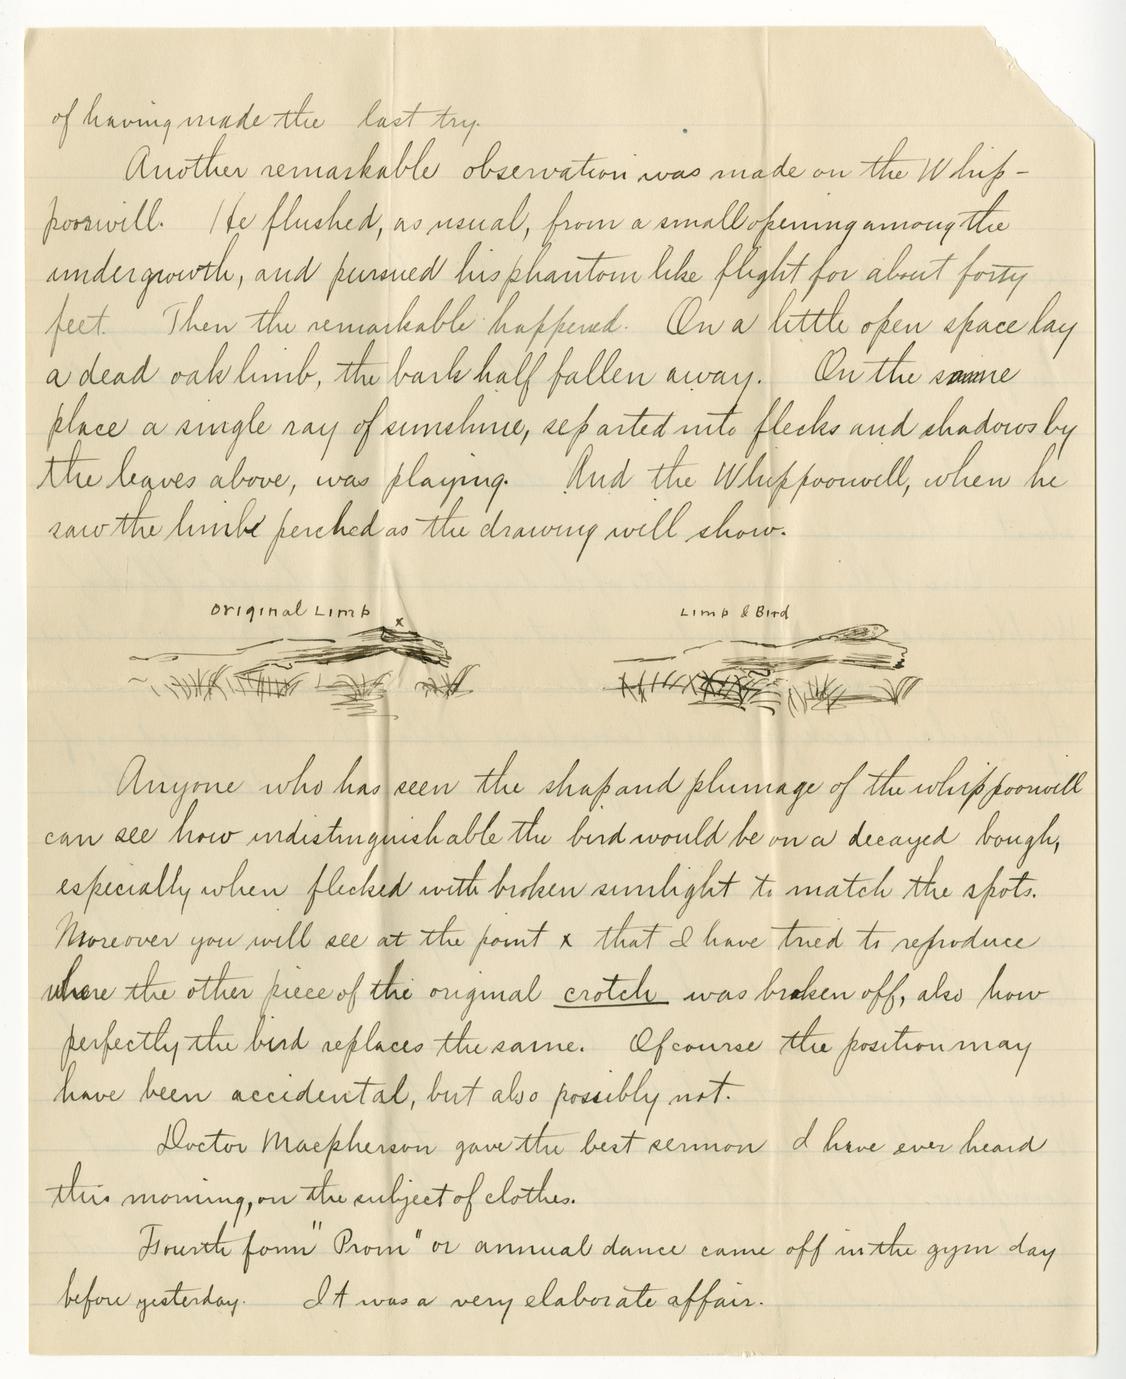 of having made the last try.
Another remarkable observation was made on the Whip-
poorwill. He flushed, as usual, from a small opening among the
undergrowth, and pursued his phantom like flight for about forty
feet. Then the remarkable happened. On a little open space lay
a dead oak limb, the bark half fallen away. On the same
place a single ray of sunshine, separted into flecks and shadows by
the leaves above, was playing. And the Whippoorwill, when he
saw the limb perched as the drawing will show.
Original Limb
x
Limb & Bird
Anyone who has seen the shap and plumage of the whippoorwill
can see how indistinguishable the bird would be on a decayed bough,
especially when flecked with broken sunlight to match the spots.
Moreover you will see at the point x that I have tried to reproduce
where the other piece of the original crotch was broken off, also how
perfectly the bird replaces the same. Of course the position may
have been accidental, but also possibly not.
Doctor Macpherson gave the best sermon I have ever heard
this morning, on the subject of clothes.
Fourth form "Prom" or annual dance came off in the gym day
before yesterday. It was a very elaborate affair.